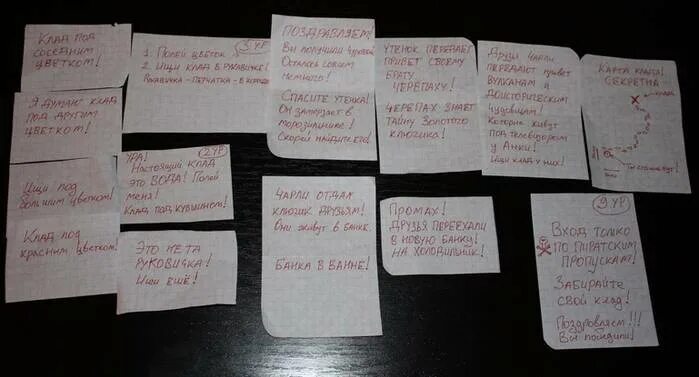 КЛАД ПОД
СОСЕДНИМ
ЦВЕТКОМ!
Я ДУМАЮ КЛАД
ПОД ДРУГИМ
ЦВЕТКОМ!
Ищи под
большим цветком!
Клад под
красным цветком!
5 УР
1. Полей цветок
2. Ищи клад в рукавичке!
Рукавичка - перчатка - в
УРА!
2 УР
Настоящий клад
это ВОДА! Полей
меня!
Клад под кувшином!
Это не та
рукавичка!
Ищи ещё!
ПОЗДРАВЛЯЕМ!
Вы получили
Осталось совсем
немного!
Спасите утёнка!
Он замерзает в
морозильнике!
Скорей найдите его!
УТЕНОК ПЕРЕДАЕТ
ПРИВЕТ СВОЕМУ
БРАТУ
ЧЕРЕПАХУ!
ЧЕРЕПАХ ЗНАЕТ
ТАЙНУ ЗОЛОТОГО
КЛЮЧИКА!
Друзья Чарли
передают привет
вулканам и
доисторическим
чудовищам!
Которые живут
под телевизором
у Аньки!
Ищи клад у них!
КАРТА КЛАДА!
СЕКРЕТНО
клад
Ты стоишь тут!
ЧАРЛИ ОТДАЛ
КЛЮЧИК ДРУЗЬЯМ!
Они живут в банке
Банка в ванне!
Промах!
Друзья переехали
в новую банку!
на холодильник!
9 УР
Вход только
по пиратским
пропускам!
Забирайте
свой клад!
Поздравляем!!!
Вы победили!